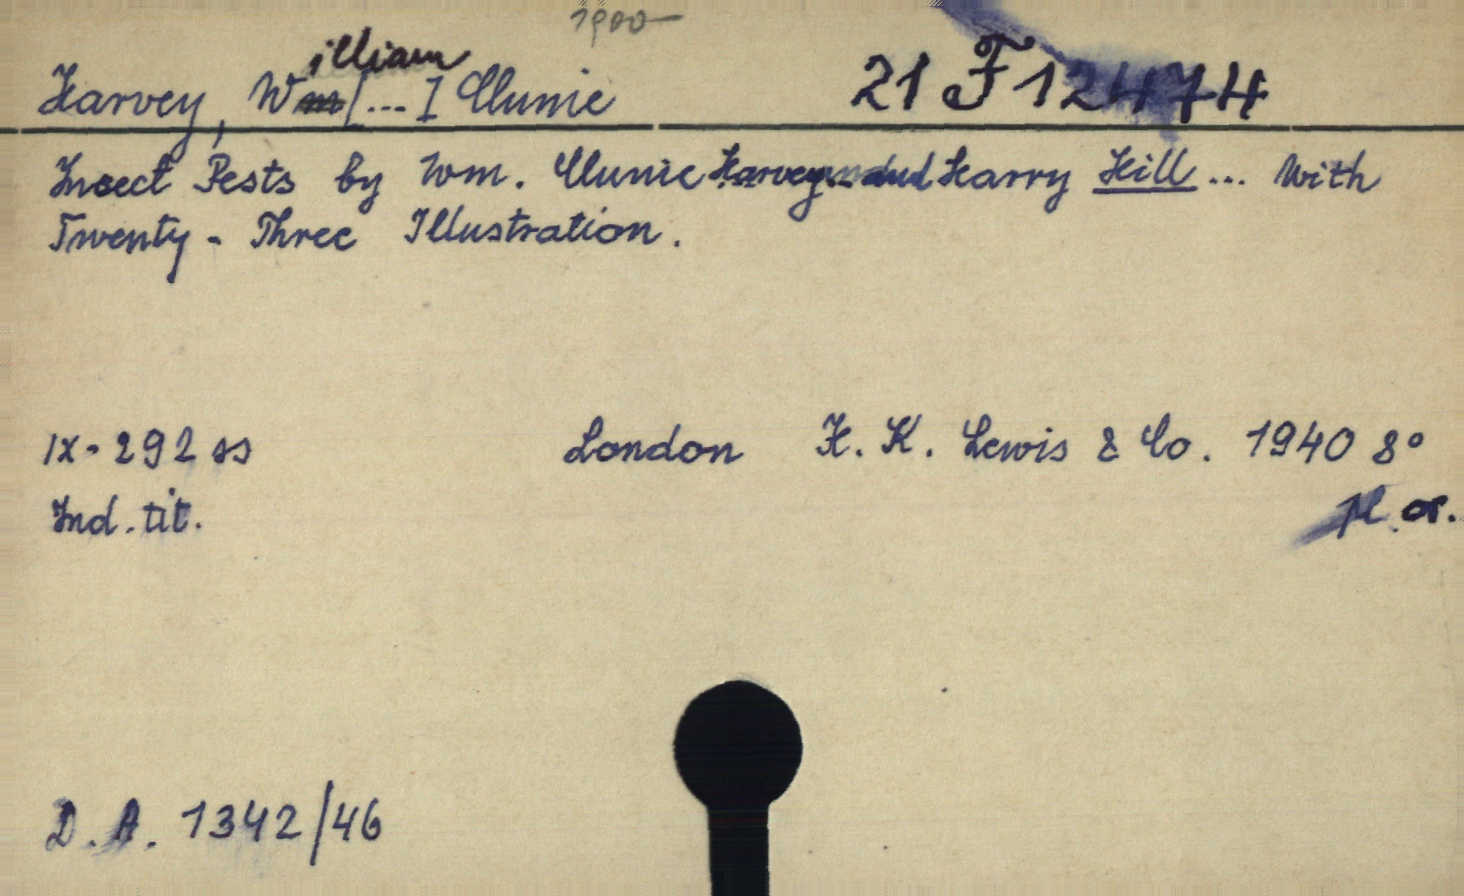 1900-
Harvey, William [...] Clunie 21 F 12474
Insect Pests by Wm. Clunie Harvey... and Harry Hill ... With
Twenty-Three Illustration.
IX-292 ss London H. K. Lewis & Co. 1940 8°
Ind. tit. pł. or.
D. A. 1342/46